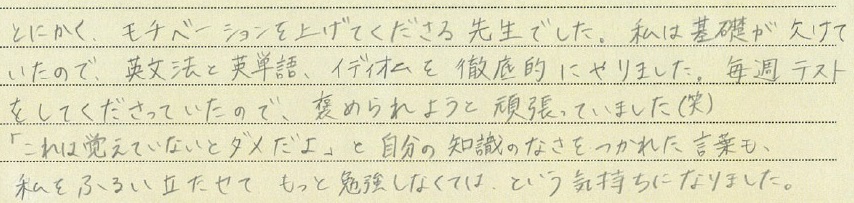 とにかく、モチベーションを上げてくださる先生でした。私は基礎が欠けて
いたので、英文法と英単語、イディオムを徹底的にやりました。毎週テスト
をしてくださっていたので、褒められようと頑張っていました(笑)
「これは覚えていないとダメだよ」と自分の知識のなさをつかれた言葉も、
私をふるい立たせて もっと勉強しなくては、という気持ちになりました。